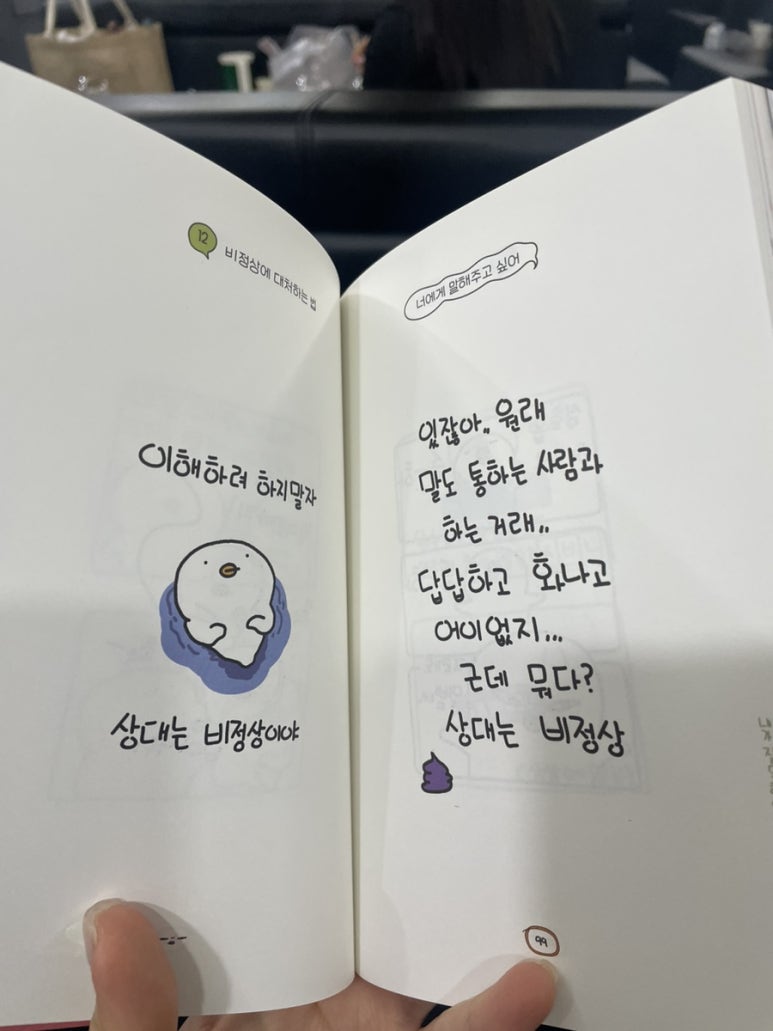 12
비정상에 대처하는 법
이해하려 하지말자
상대는 비정상이야
너에게 말해주고 싶어
있잖아.. 원래
말도 통하는 사람과
하는 거래..
답답하고 화나고
어이없지...
근데 뭐다?
상대는 비정상
99